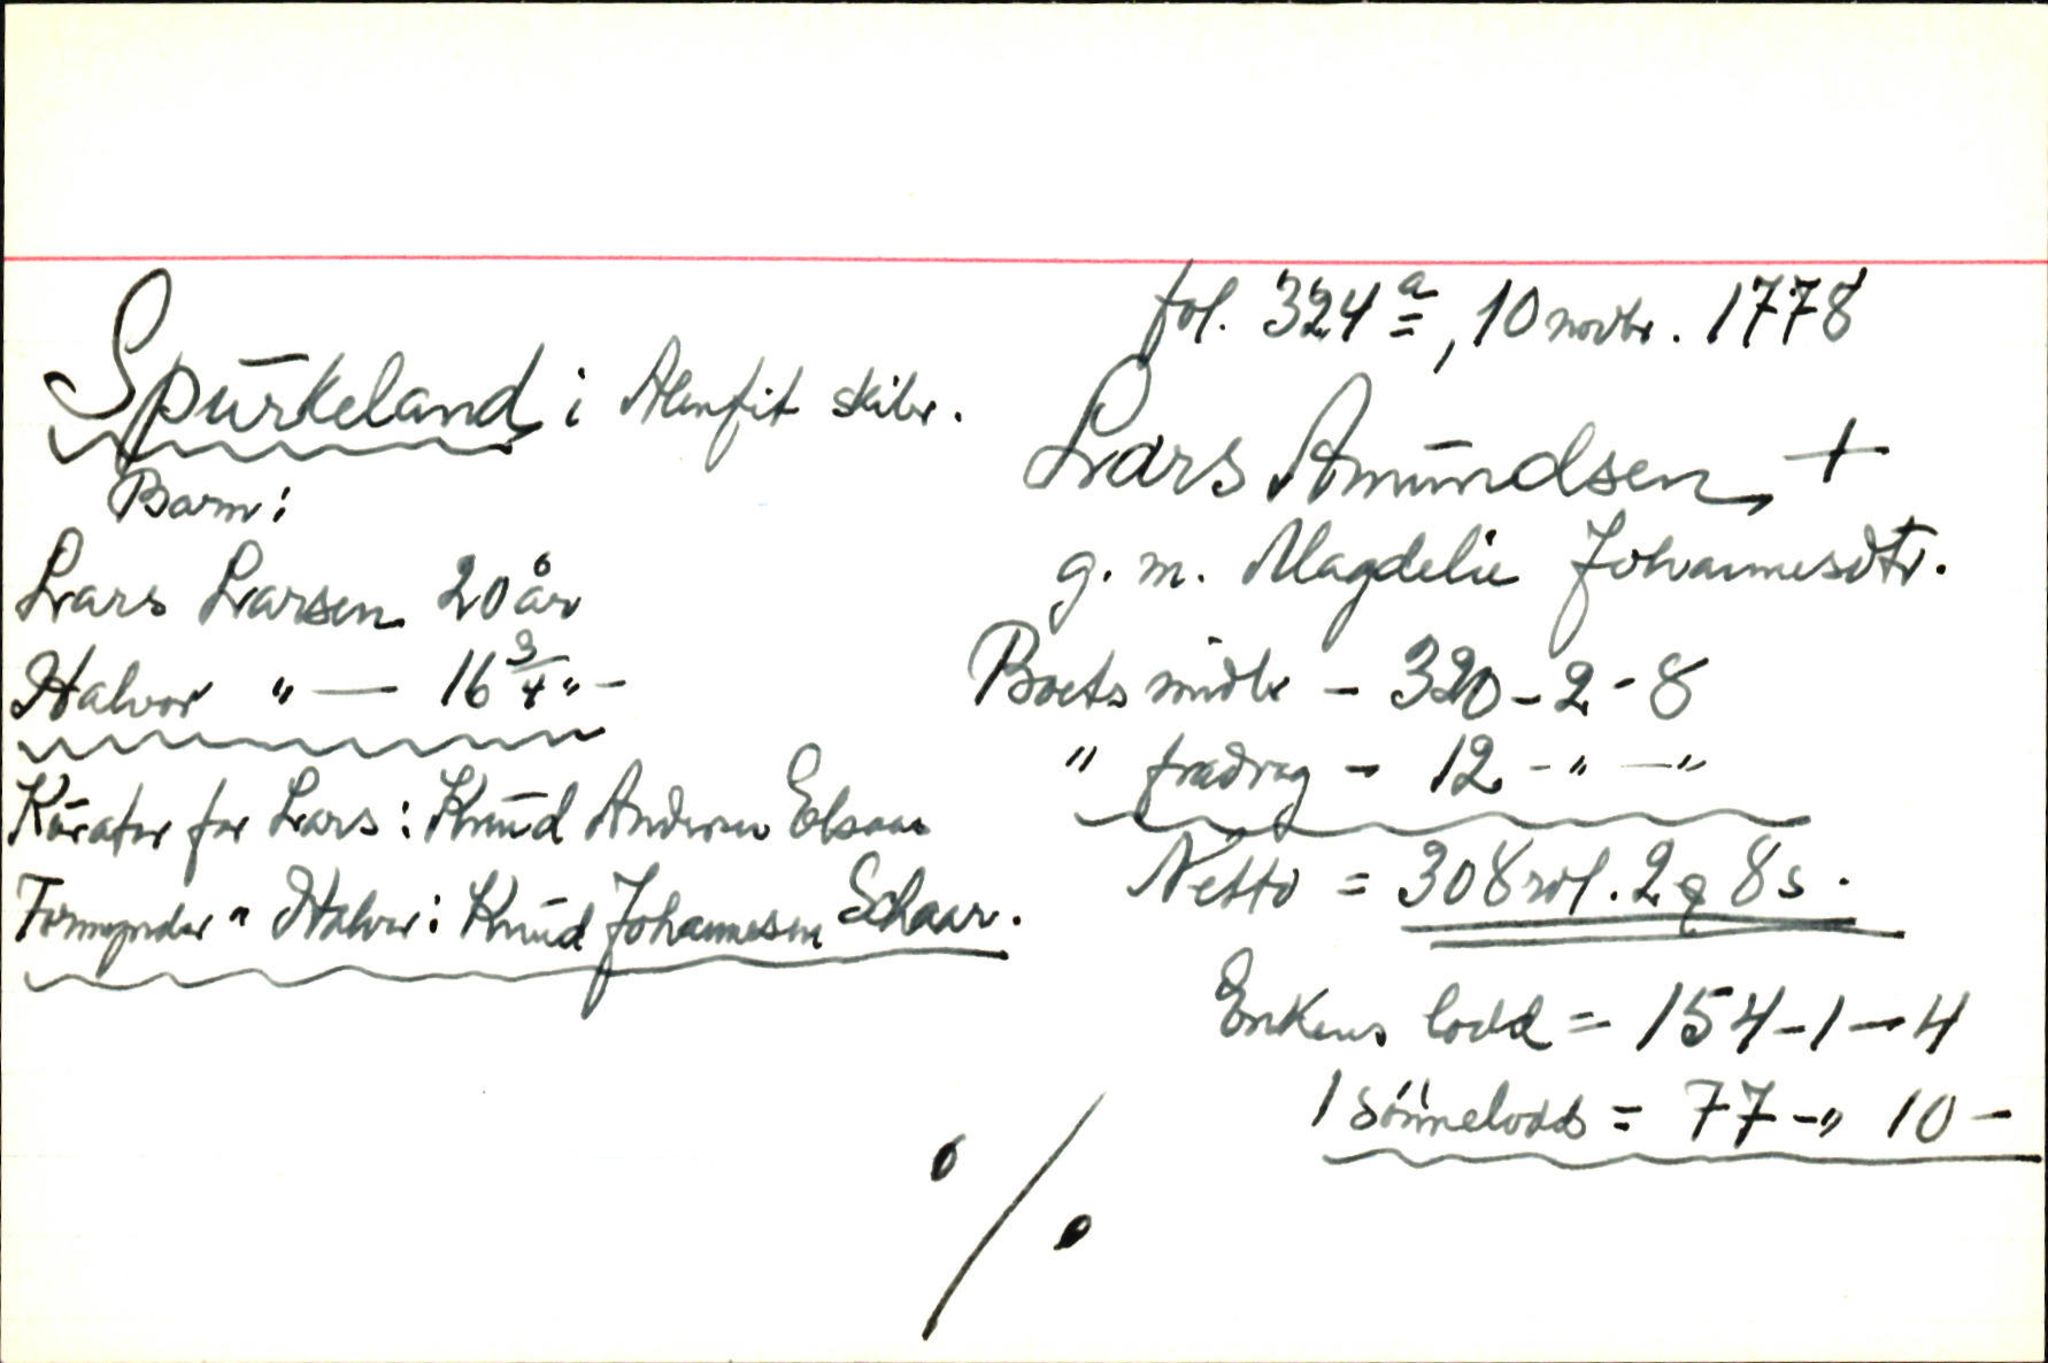 fol. 324 a, 10 novbr. 1778
Spurkeland i Alenfit skibr.
Lars Amundsen +
g. m. Magdelie Johannesdtr.
Barn:
Lars Larsen 20 år
Halvor " — 16 3/4 " -
Kurator for Lars: Knud Andersen Elsaas
Formynder " Halvor: Knud Johannesen Schaar.
Boets midler - 320 - 2 - 8
" fradrag - 12 - " - "
Netto = 308 rdl. 2 q 8 s.
Enkens lodd = 154 - 1 - 4
1 sønnelodd = 77 - " 10 -
./.